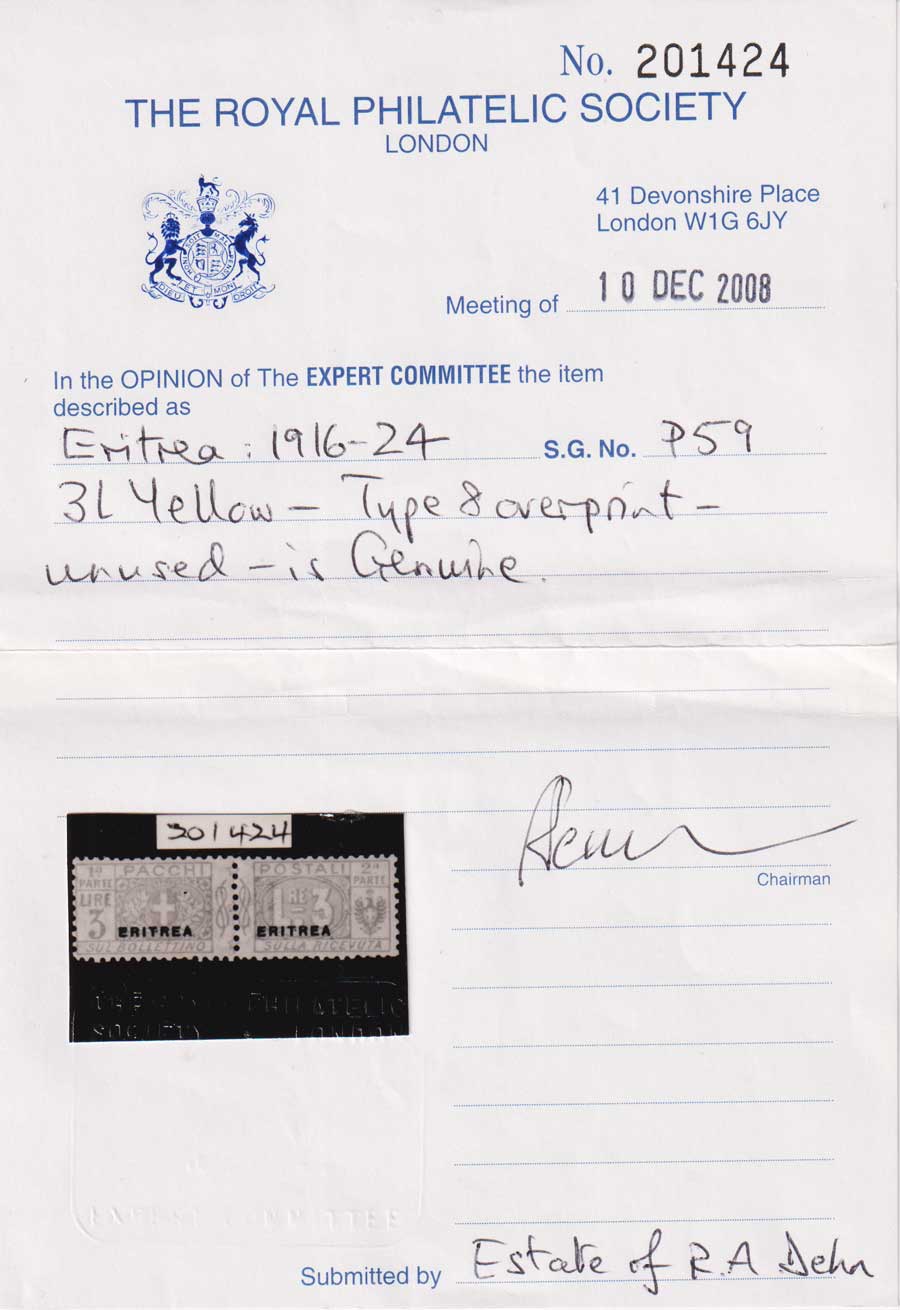 No. 201424
THE ROYAL PHILATELIC SOCIETY
LONDON
SOIT MAL
DIEU ET MON DROIT
41 Devonshire Place
London W1G 6JY
Meeting of 10 DEC 2008
In the OPINION of The EXPERT COMMITTEE the item
described as
Eritrea : 1916-24 S.G. No. P59
3L Yellow – Type 8 overprint –
unused – is Genuine.
201424
1ª PARTE PACCHI POSTALI 2ª PARTE
LIRE 3 LIRE 3
ERITREA ERITREA
SUL BOLLETTINO SULLA RICEVUTA
THE PHILATELIC
SOCIETY LONDON
Chairman
EXPERT COMMITTEE
Submitted by Estate of R.A Dehn